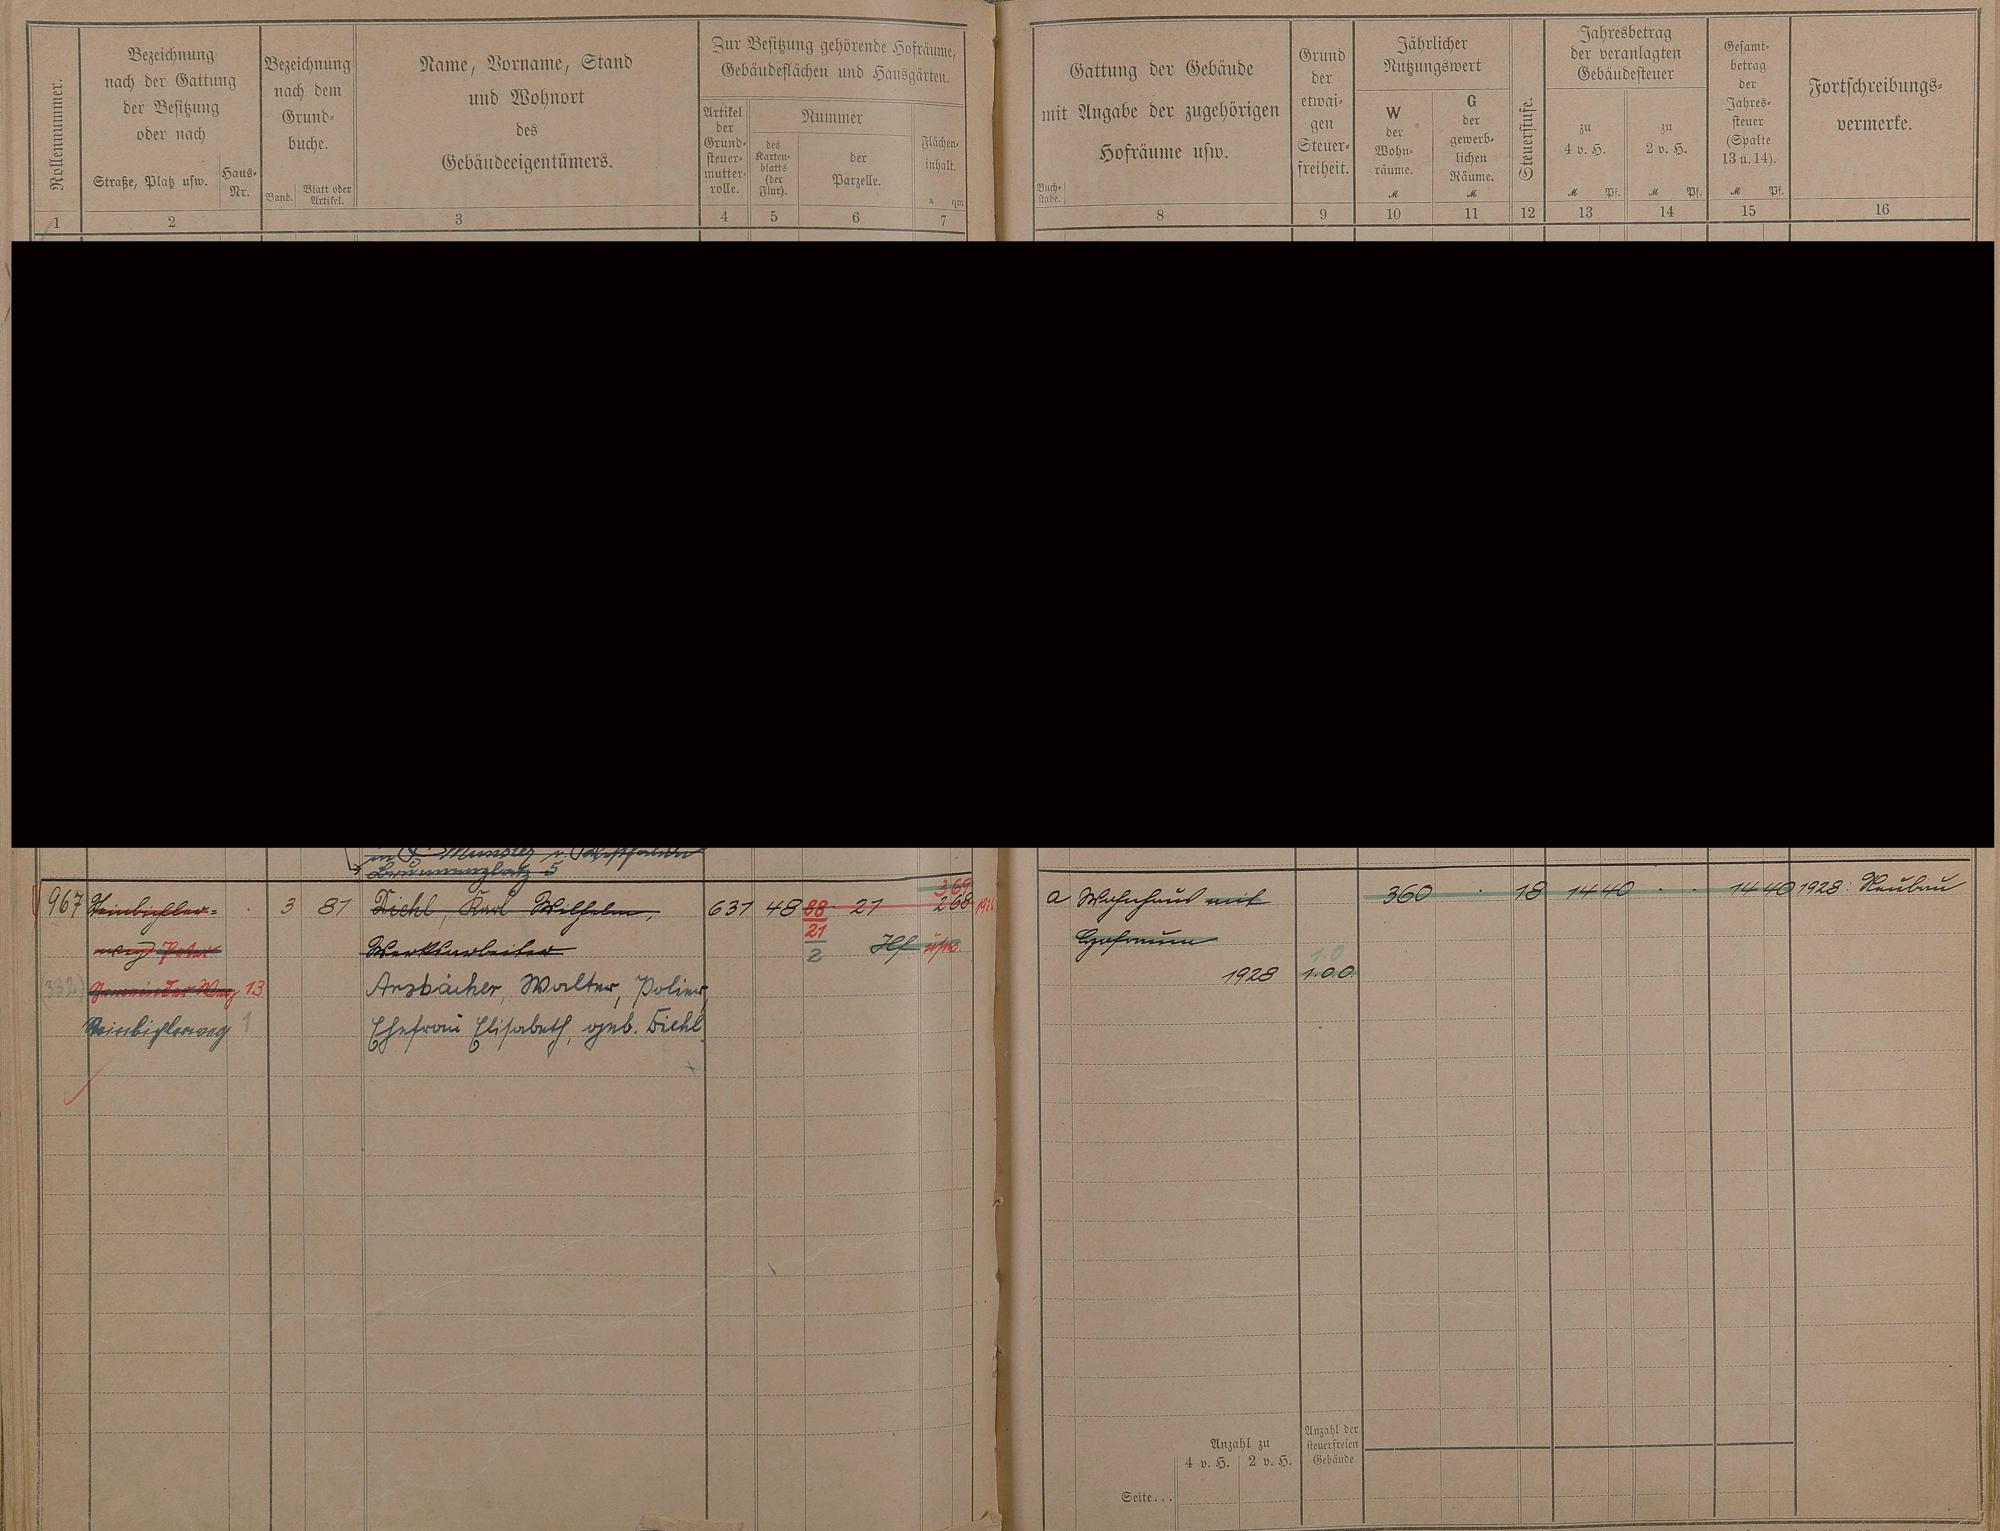 Rollennummer.
Bezeichnung
nach der Gattung
der Besitzung
oder nach
Straße, Platz usw.
Haus-
Nr.
Bezeichnung
nach dem
Grund-
buche.
Band.
Blatt oder
Artikel.
Name, Vorname, Stand
und Wohnort
des
Gebäudeeigentümers.
Zur Besitzung gehörende Hofräume,
Gebäudeflächen und Hausgärten.
Artikel
der
Grund-
steuer-
mutter-
rolle.
Nummer
des
Karten-
blatts
(der
Flur).
der
Parzelle.
Flächen-
inhalt.
a qm
1 2 3 4 5 6 7
Buch-
stabe.
Gattung der Gebäude
mit Angabe der zugehörigen
Hofräume usw.
Grund
der
etwai-
gen
Steuer-
freiheit.
Jährlicher
Nutzungswert
W
der
Wohn-
räume.
M
G
der
gewerb-
lichen
Räume.
M
Steuerstufe.
Jahresbetrag
der veranlagten
Gebäudesteuer
zu
4 v. H.
M Pf.
zu
2 v. H.
M Pf.
Gesamt-
betrag
der
Jahres-
steuer
(Spalte
13 u. 14).
M Pf.
Fortschreibungs-
vermerke.
8 9 10 11 12 13 14 15 16
in Münster i. Westfalen
Brunnenplatz 5
369
967 3 81 Diehl, Karl Wilhelm, 637 48 88 21 268
21
2
Hf usw.
Werksarbeiter
(332) Gemeinder Weg 13
Arzbächer, Walter, Polier,
1
Ehefrau Elisabeth, geb. Diehl
a Wohnhaus mit 360 18 14 40 14 40 1928: Neubau
Hofraum
1.0
1928 1.0.0.
Anzahl zu
4 v. H. 2 v. H.
Anzahl der
steuerfreien
Gebäude
Seite...